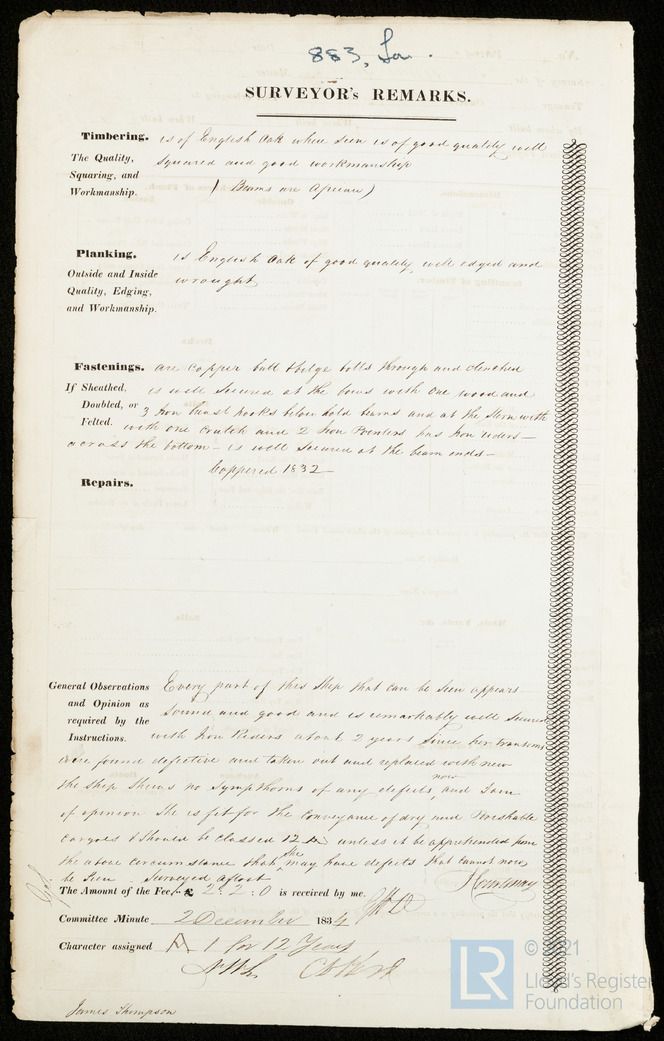 883, Lon.
SURVEYOR's REMARKS.
Timbering. is of English Oak where seen is of good quality well
The Quality, squared and good workmanship
Squaring, and
Workmanship. (Beams are Spruce)
Planking. is English Oak of good quality, well edged and
Outside and Inside wrought
Quality, Edging,
and Workmanship.
Fastenings. are Copper butt & bilge bolts through and clenched
If Sheathed, is well secured at the bows with one wood and
Doubled, or 3 Iron breast hooks below hold beams and at the Stern with
Felted. with one Crutch and 2 Iron Pointers has Iron riders —
across the bottom — is well secured at the beam ends —
Coppered 1832 —
Repairs.
General Observations Every part of this Ship that can be seen appears
and Opinion as sound and good and is remarkably well secured
required by the with Iron Riders about 2 years since her transoms
Instructions. were found defective and taken out and replaced with new
the Ship shews no Symptoms of any defects now, and I am
of opinion She is fit for the Conveyance of dry and Perishable
Cargoes & Should be classed 12 A unless it be apprehended from
the above circumstance that She may have defects that cannot now
be Seen - Surveyed afloat
The Amount of the Fee £ 2 : 2 : 0 is received by me.
Committee Minute 2 December 1834
Character assigned A 1 for 12 Years
James Thompson
LR © 2021
Lloyd's Register
Foundation